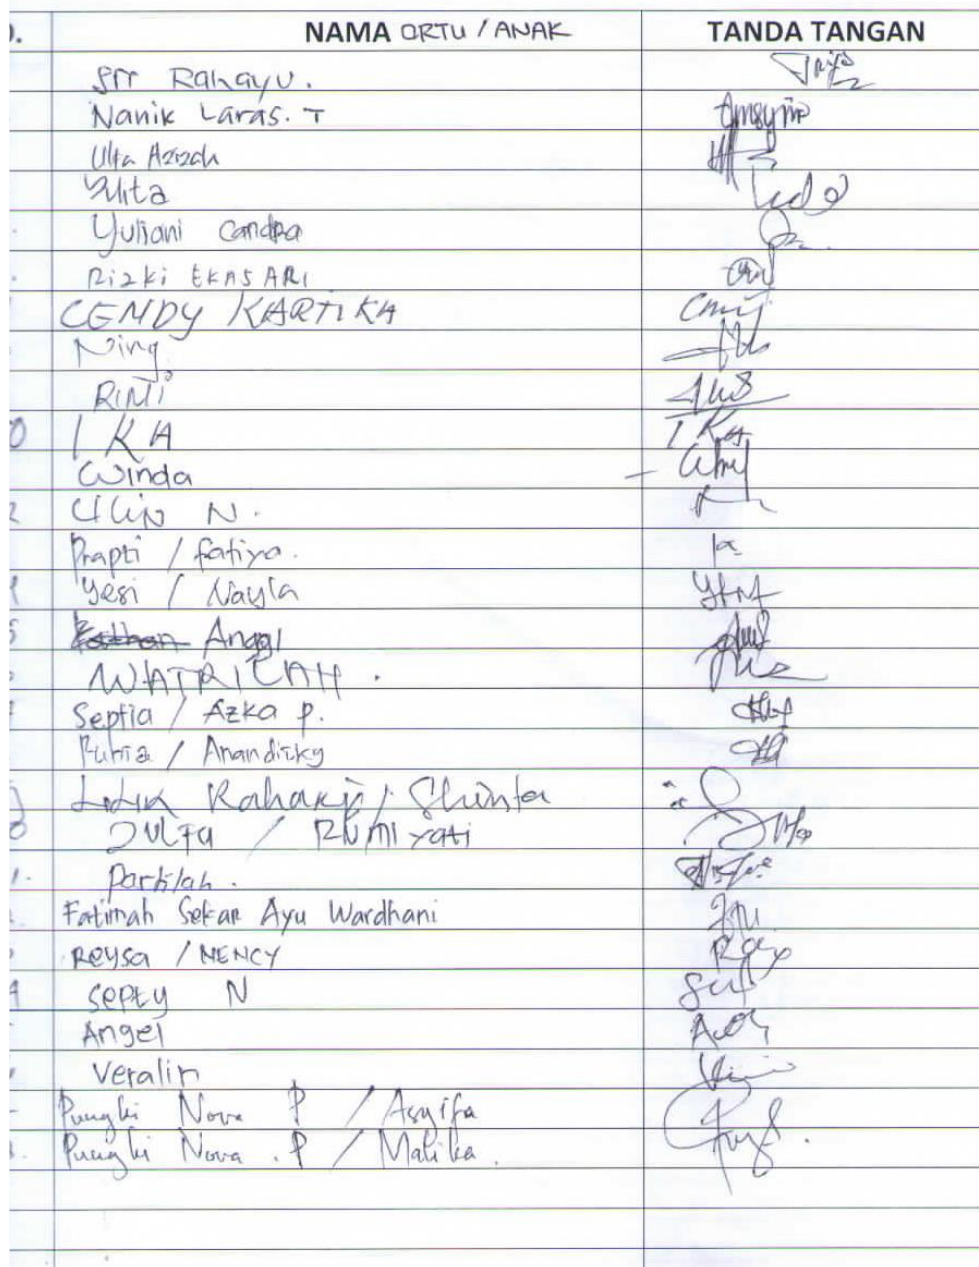 NAMA ORTU / ANAK TANDA TANGAN
Sri Rahayu.
Nanik Laras. T
Ulfa Azizah
Yulita
Yuliani Candra
Rizki EKASARI
CENDY KARTIKA
Ning
RINTI
IKA IKA
Winda
N.
Prapti / fatiya.
Yesi / Nayla
Anggi
WATRICAH.
Septia / Azka p.
/ Anandizky
/ Shinta
ZULFA / RUMIyati
Partilah.
Fatimah Sekar Ayu Wardhani
Reysa / NENCY
Septy N
Angel
Veralin
Pungki Nova P / Asyifa
Pungki Nova . P / Malika.